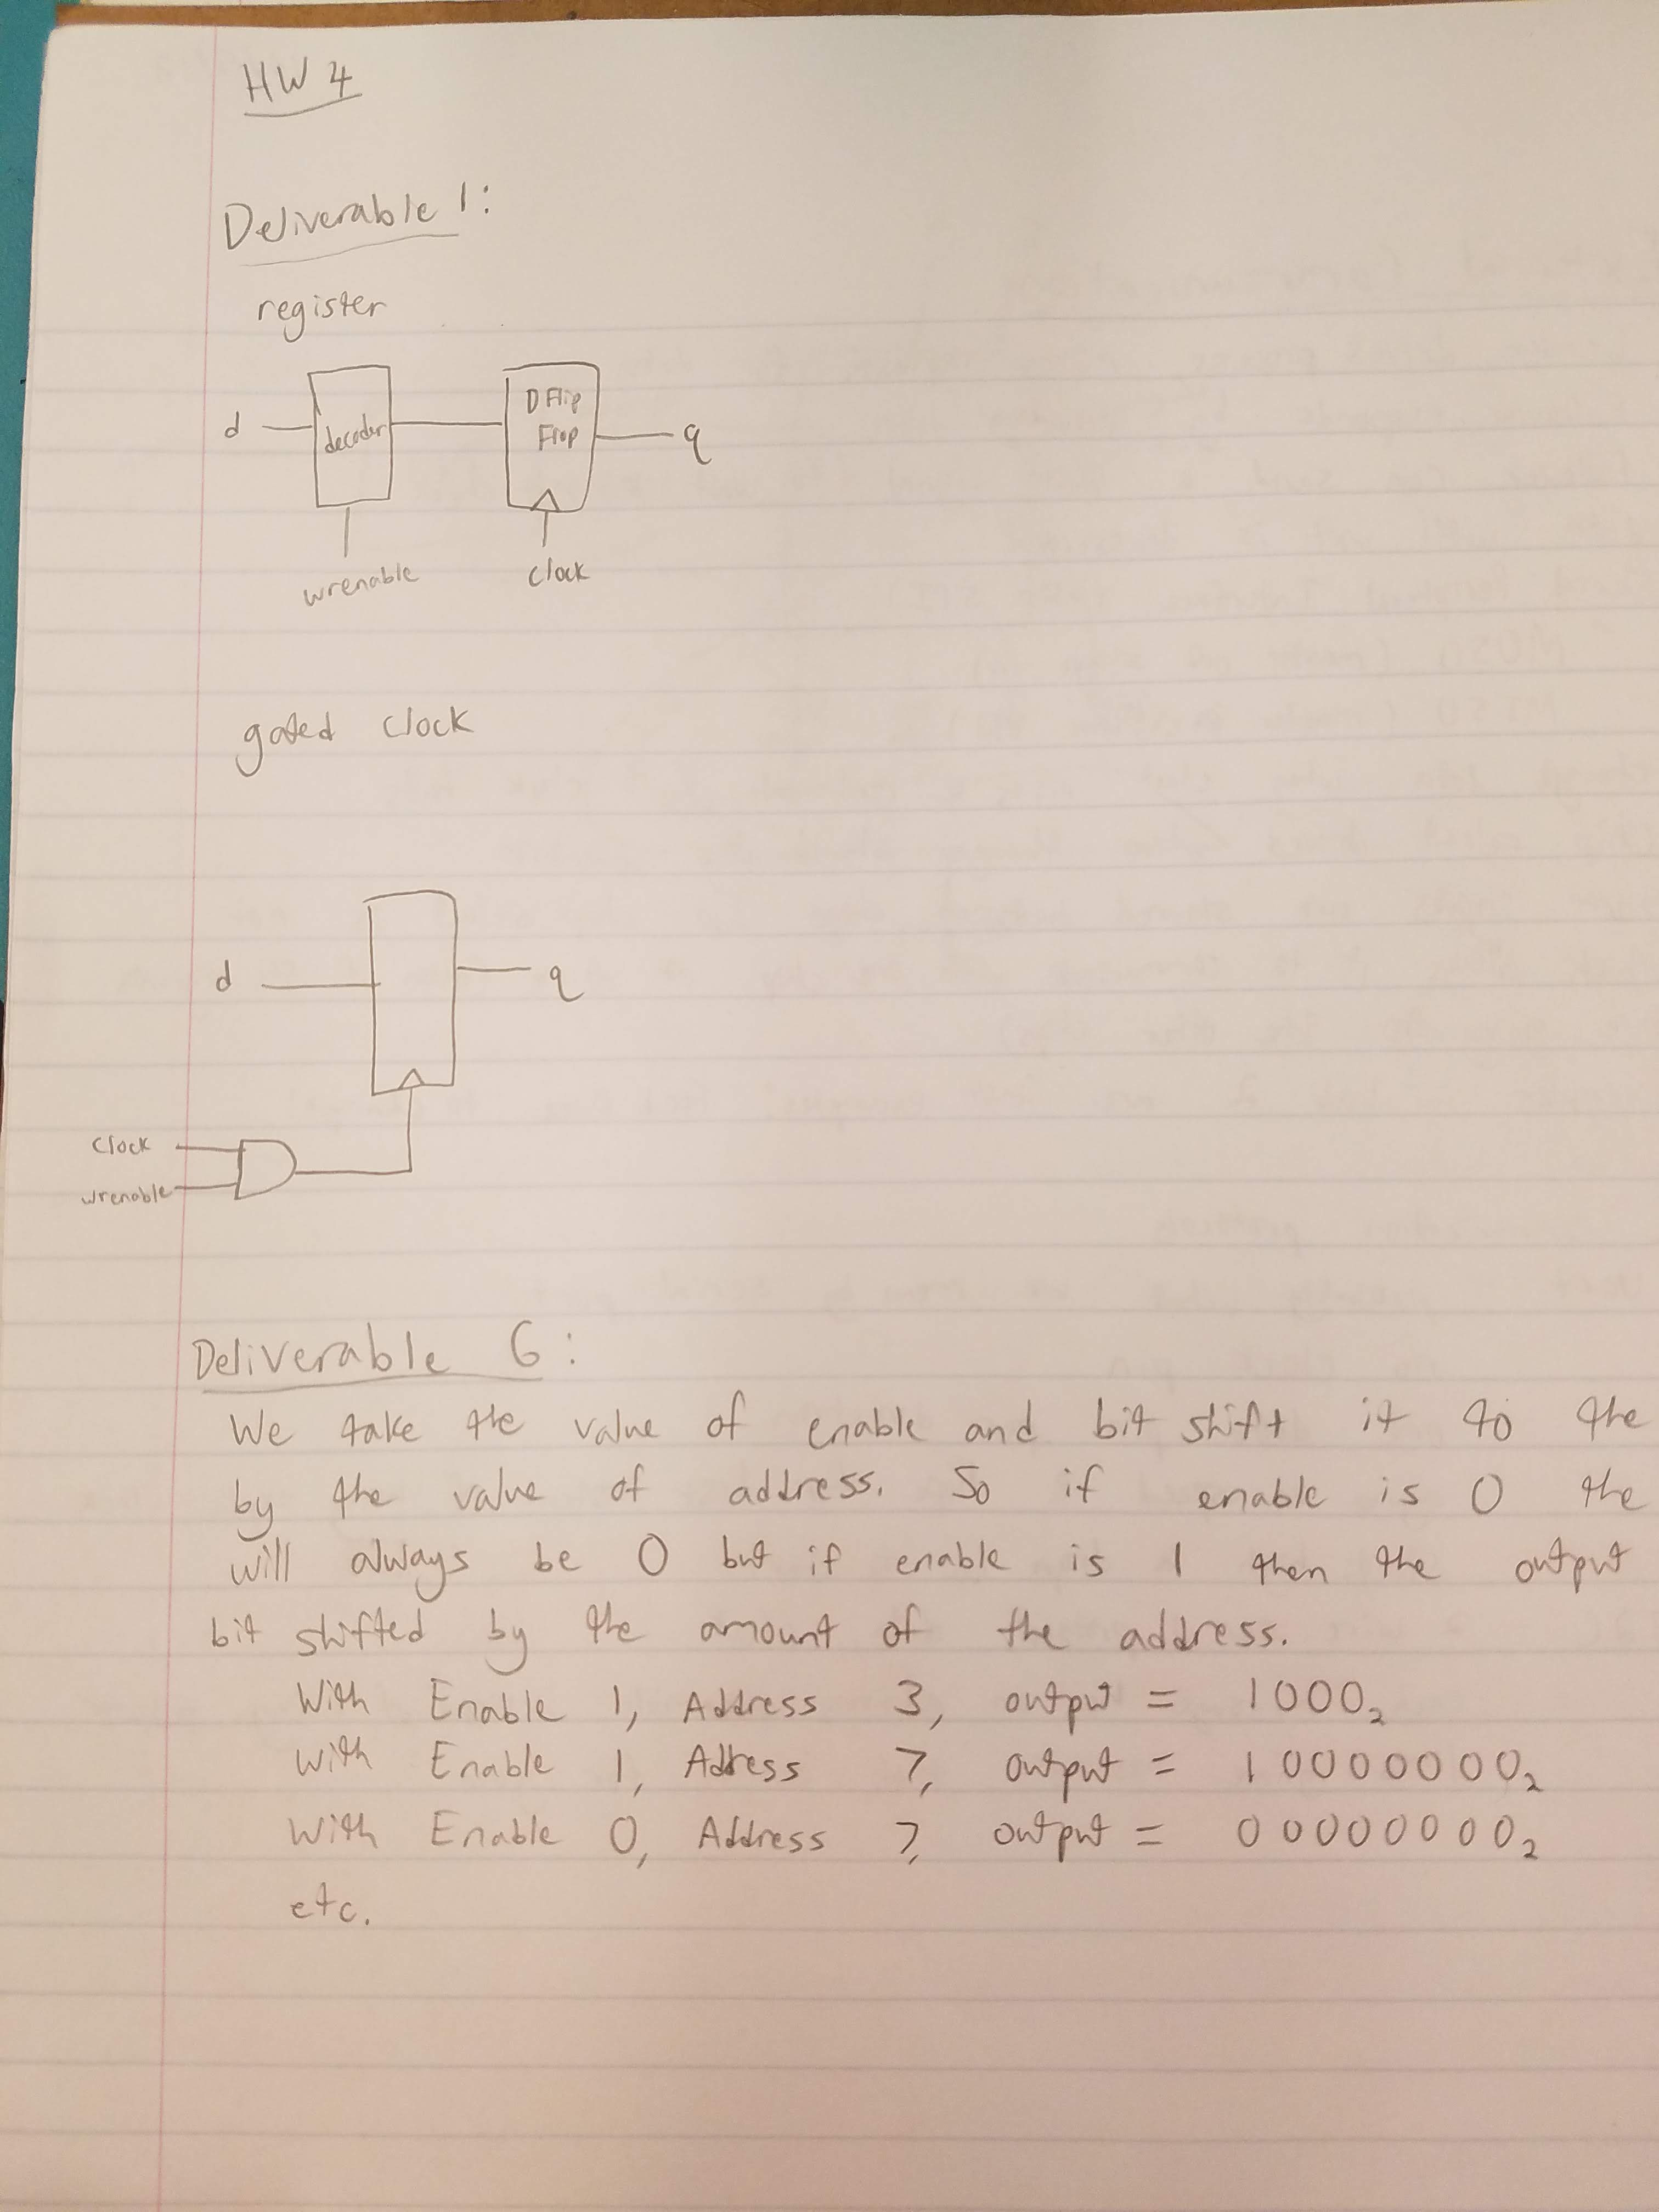 HW 4
Deliverable 1:
register
d decoder D Flip Flop q
wrenable clock
gated clock
d q
clock
wrenable
Deliverable 6:
We take the value of enable and bit shift it to the
by the value of address. So if enable is 0 the
will always be 0 but if enable is 1 then the output
bit shifted by the amount of the address.
With Enable 1, Address 3, output = 1000₂
With Enable 1, Adress 7, output = 10000000₂
With Enable 0, Address 7, output = 00000000₂
etc.